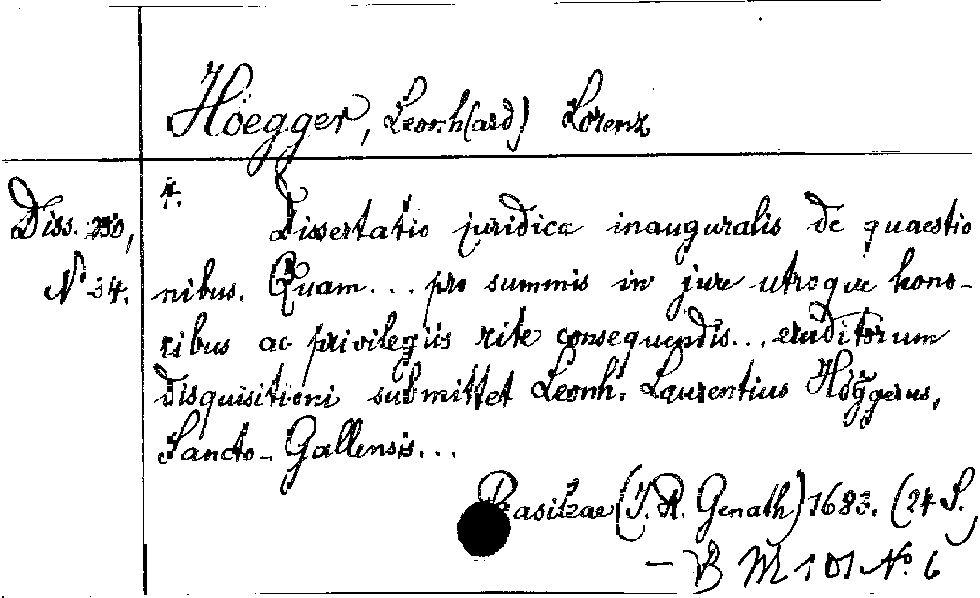 Höegger, Leonh(ard) Lorenz
Diss. 250,
N° 34.
4. Dissertatio juridica inauguralis de quaestio
nibus. Quam... pro summis in jure utroque hono-
ribus ac privilegiis rite consequendis... eruditorum
disquisitioni submittet Leonh. Laurentius Höggerus,
Sancto-Gallensis...
Basileae (J. R. Genath) 1683. (24 S.)
— B M 101 No. 6